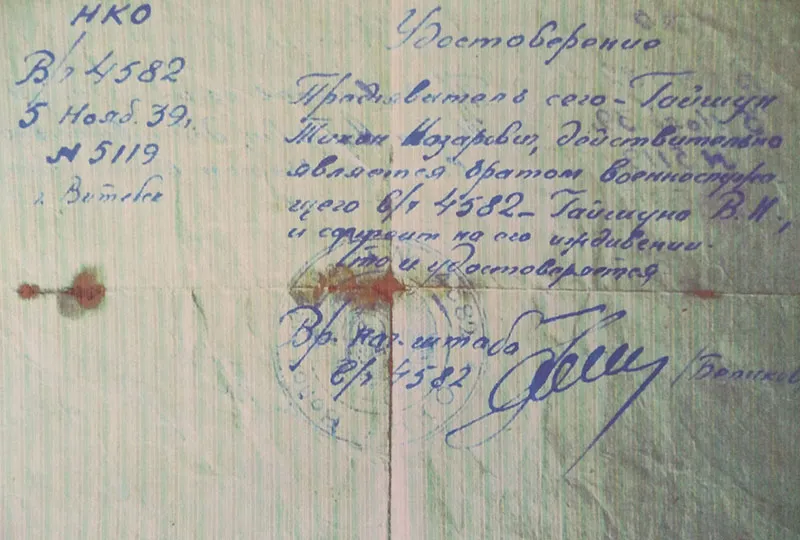 НКО
В/ч 4582
5 Нояб. 39г.
№ 5119
г. Витебск
Удостоверение
Предъявитель сего - Гайшун
Тихон Назарович, действительно
является братом военнослужа
щего в/ч 4582 - Гайшуна В.Н.,
и состоит на его иждивении.
Что и удостоверяется
Вр. нач. штаба
в/ч 4582